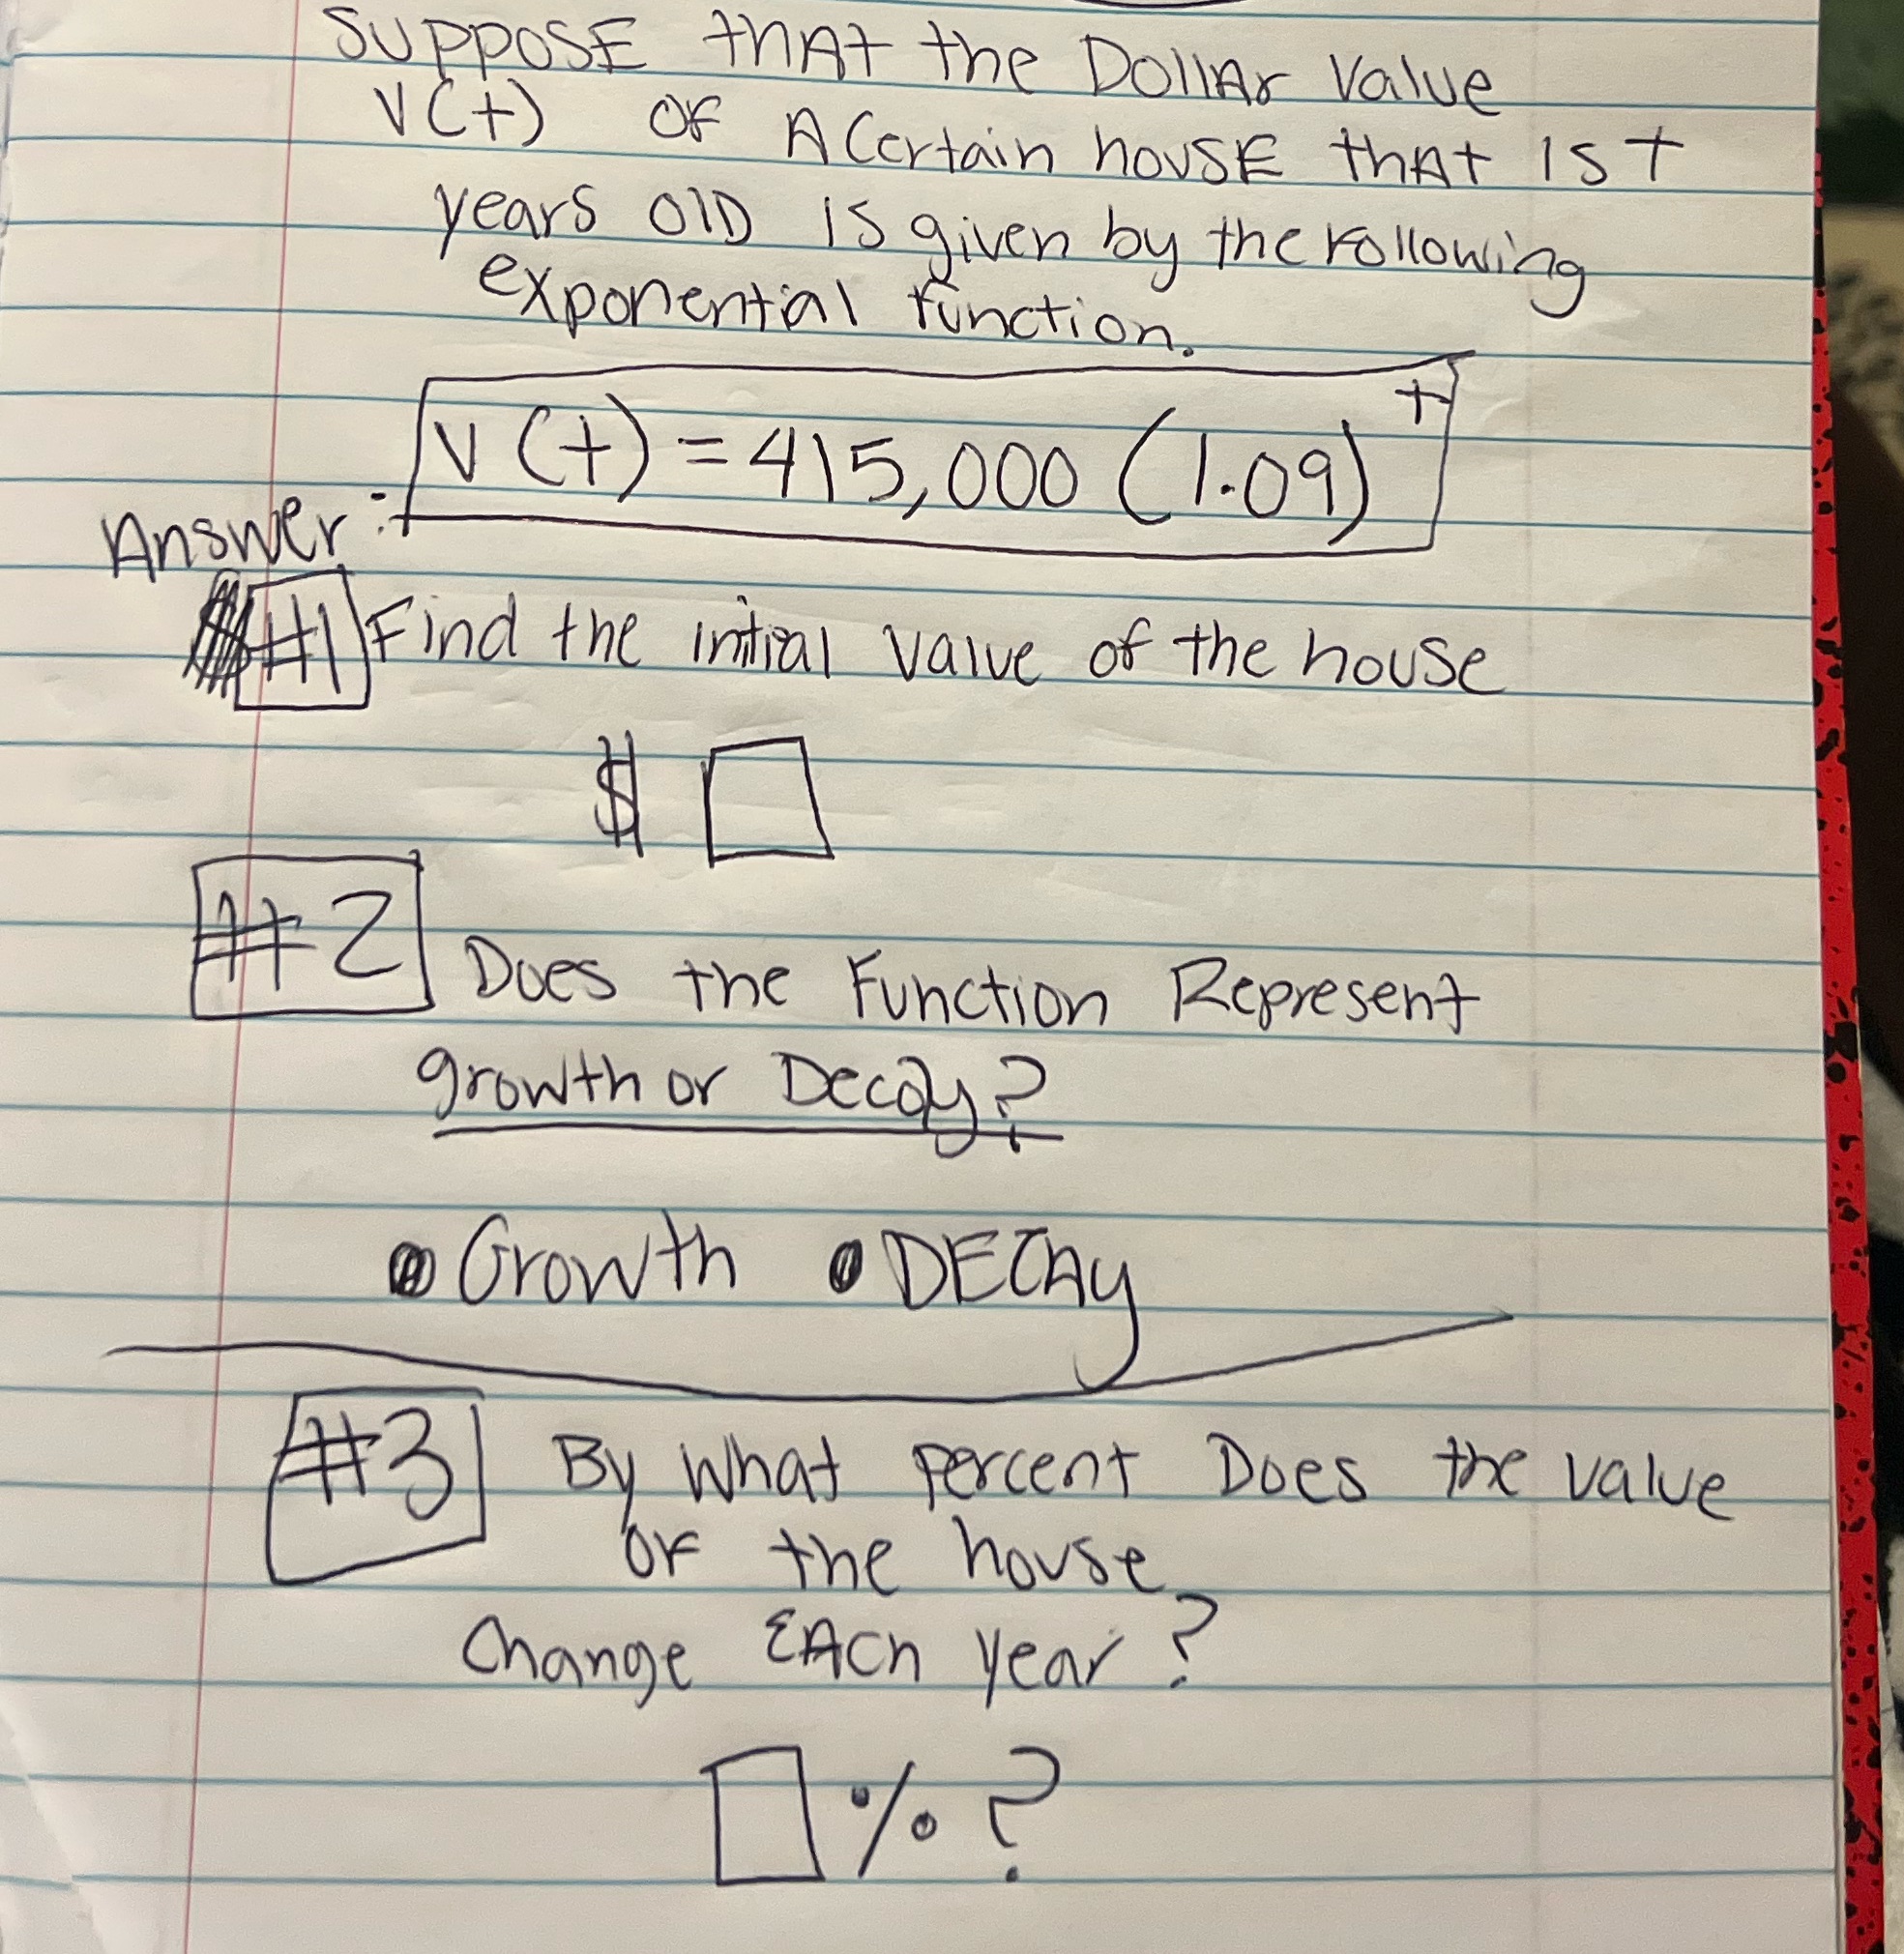 SUPPOSE thAt the DollAr Value
V(t) OF A Certain hoUSE thAt IS t
years OlD IS given by the Following
exponential function.
V(t) = 415,000 (1.09)^t
Answer:
#1 Find the intial value of the house
$
#2 Does the Function Represent
growth or Decay?
Growth DECAy
#3 By What Percent Does the value
OF the house
Change EAch year?
%?